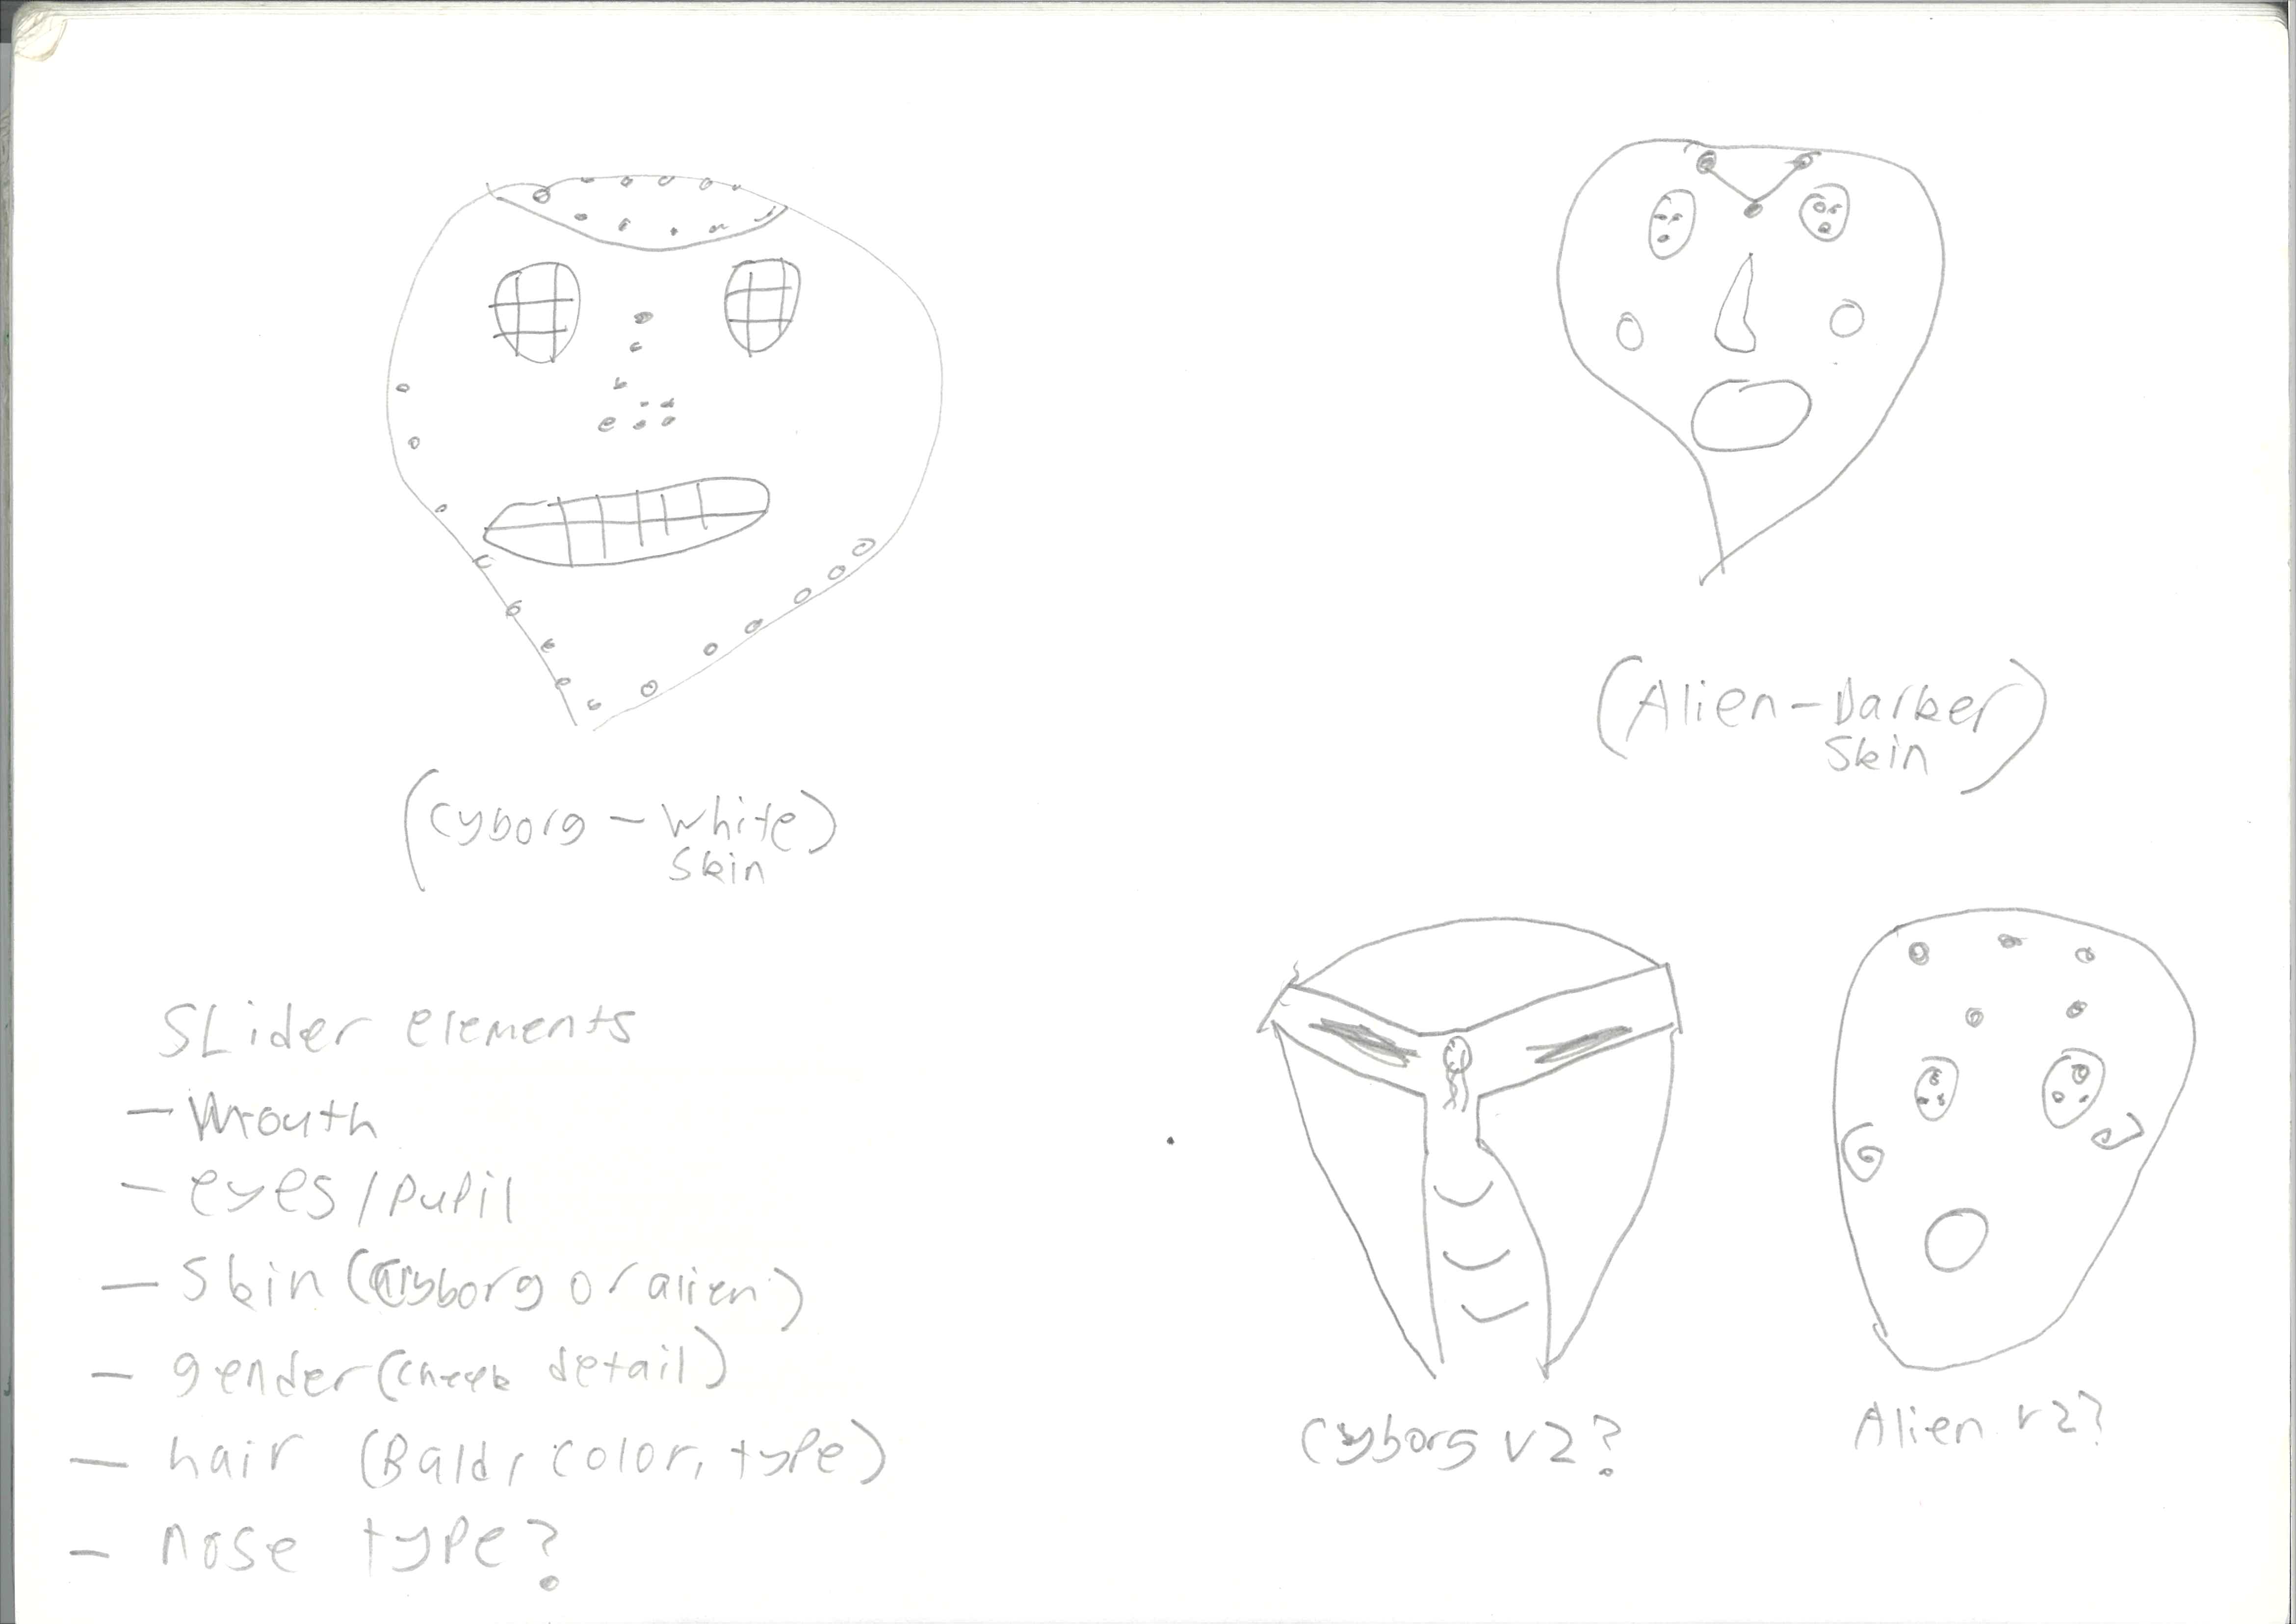 (Cyborg - White
Skin)
(Alien - Darker
Skin)
SLider elements
- Mouth
- eyes/pupil
- skin (Cyborg or alien)
- gender (cheek detail)
- hair (Bald, color, type)
- nose type?
Cyborg v2?
Alien v2?